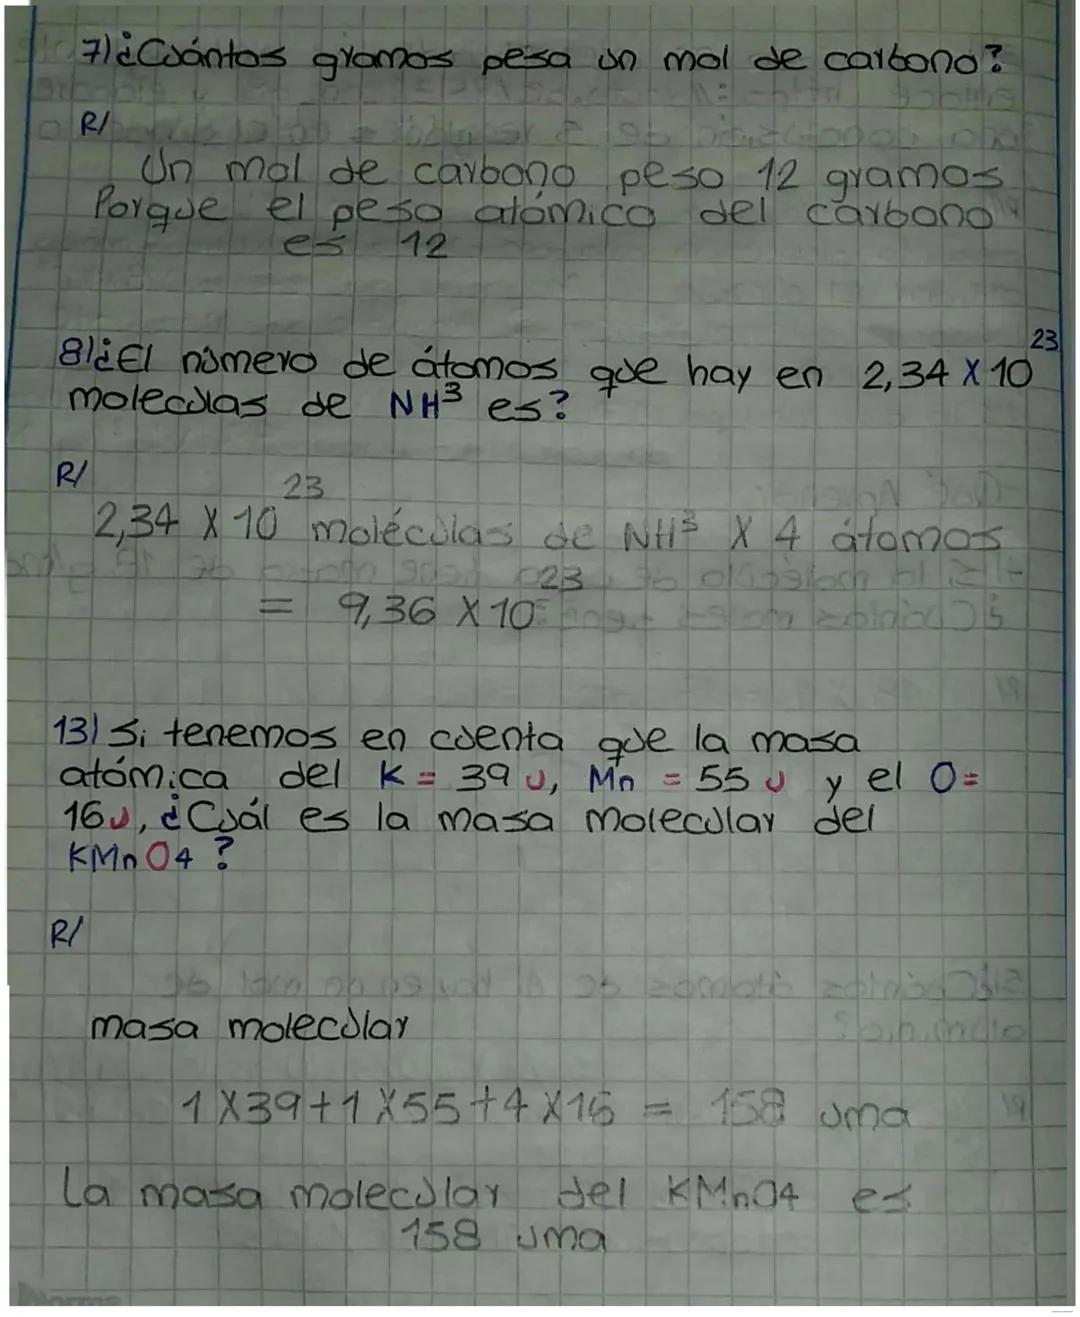 7) ¿Cuántos gramos pesa un mol de carbono?
R/
Un mol de carbono peso 12 gramos
Porque el peso atómico del carbono
es 12
8) ¿El número de átomos que hay en 2,34 X 10²³
moleculas de NH³ es?
R/
2,34 X 10²³ moléculas de NH³ X 4 átomos
= 9,36 X 10²³
13) Si tenemos en cuenta que la masa
atómica del K = 39 u, Mn = 55 u y el O =
16u, ¿Cuál es la masa molecular del
KMnO4 ?
R/
masa molecular
1 X 39 + 1 X 55 + 4 X 16 = 158 uma
La masa molecular del KMnO4 es
158 uma